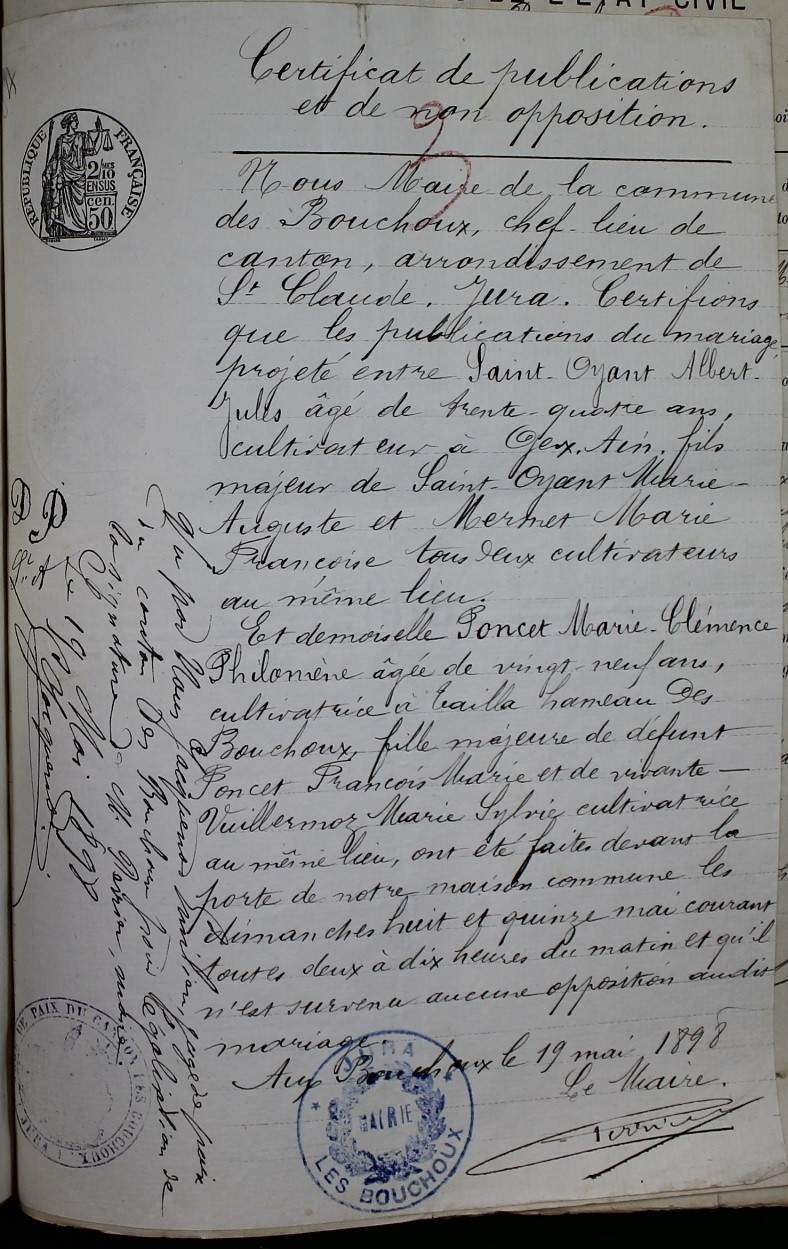 L'ÉTAT CIVIL
Certificat de publications
et de non opposition.
RÉPUBLIQUE FRANÇAISE
2/10
EN SUS
50 cen.
Nous Maire de la commune
des Bouchoux, chef-lieu de
canton, arrondissement de
St Claude. Jura. Certifions
que les publications du mariage
projeté entre Saint-Oyant Albert-
Jules âgé de trente-quatre ans,
cultivateur à Gex. Ain. fils
majeur de Saint-Oyant Marie-
Auguste et Mermet Marie
Françoise tous deux cultivateurs
au même lieu.
Et demoiselle Poncet Marie-Clémence
Philomène âgée de vingt-neuf ans,
cultivatrice à Tailla hameau Des
Bouchoux, fille majeure de défunt
Poncet François Marie et de vivante
Vuillermoz Marie Sylvie cultivatrice
au même lieu, ont été faites devant la
porte de notre maison commune les
dimanches huit et quinze mai courant
toutes deux à dix heures du matin et qu'il
n'est survenu aucune opposition audit
mariage.
Aux Bouchoux le 19 mai 1898
Le Maire.
Perrier
JURA
MAIRIE
LES BOUCHOUX
Vu par Nous Jacquenod juge de paix
du canton des Bouchoux pour légalisation de
la signature de M. Perrier, maire.
Le 19 Mai 1898
Jacquenod
DE PAIX DU CANTON LES BOUCHOUX
JURA